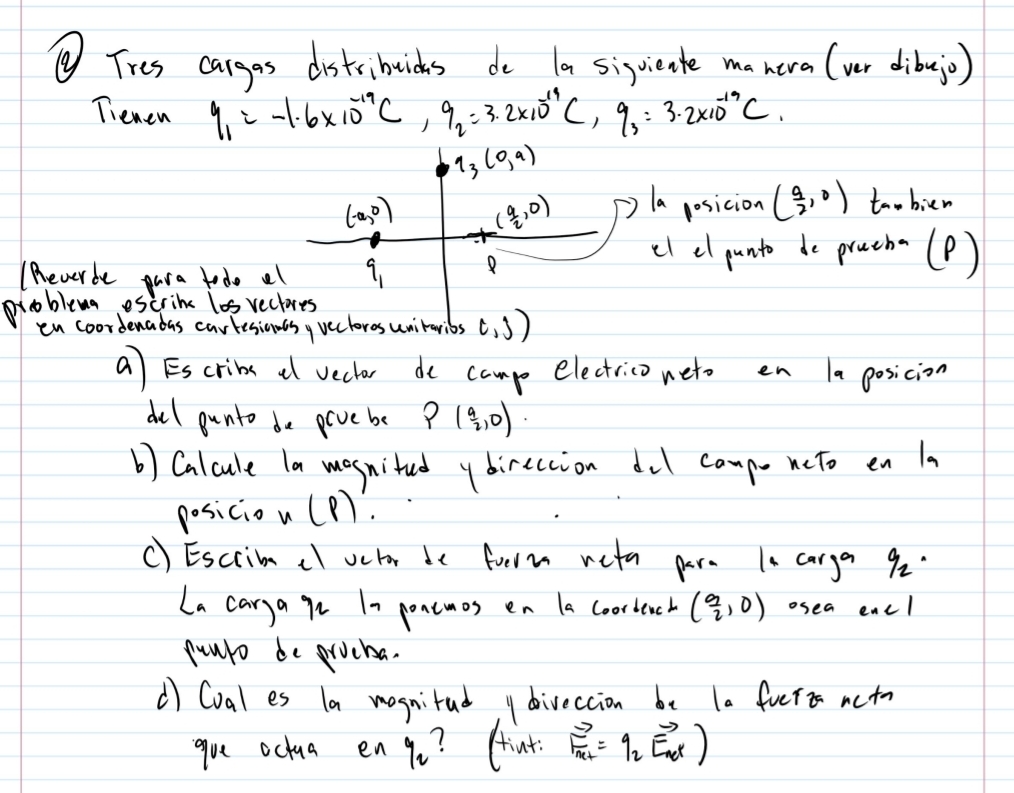 ② Tres cargas distribuidas de la siguiente manera (ver dibujo)
Tienen q₁ = -1.6x10⁻¹⁹C, q₂ = 3.2x10⁻¹⁹C, q₃ = 3.2x10⁻¹⁹C.
q₃ (0,a)
(-a,0) (a/2,0) la posicion (a/2,0) tambien
q₁ P el el punto de prueba (P)
(Recuerde para todo el
problema escriba los vectores
en coordenadas cartesianas y vectores unitarios i,j)
a) Escriba el vector de campo electrico neto en la posicion
del punto de prueba P (a/2,0).
b) Calcule la magnitud y direccion del campo neto en la
posicion (P).
c) Escriba el vector de fuerza neta para la carga q₂.
La carga q₂ la ponemos en la coordenada (a/2,0) osea en el
punto de prueba.
d) Cual es la magnitud y direccion de la fuerza neta
que actua en q₂? (Hint: F⃗net = q₂ E⃗net)